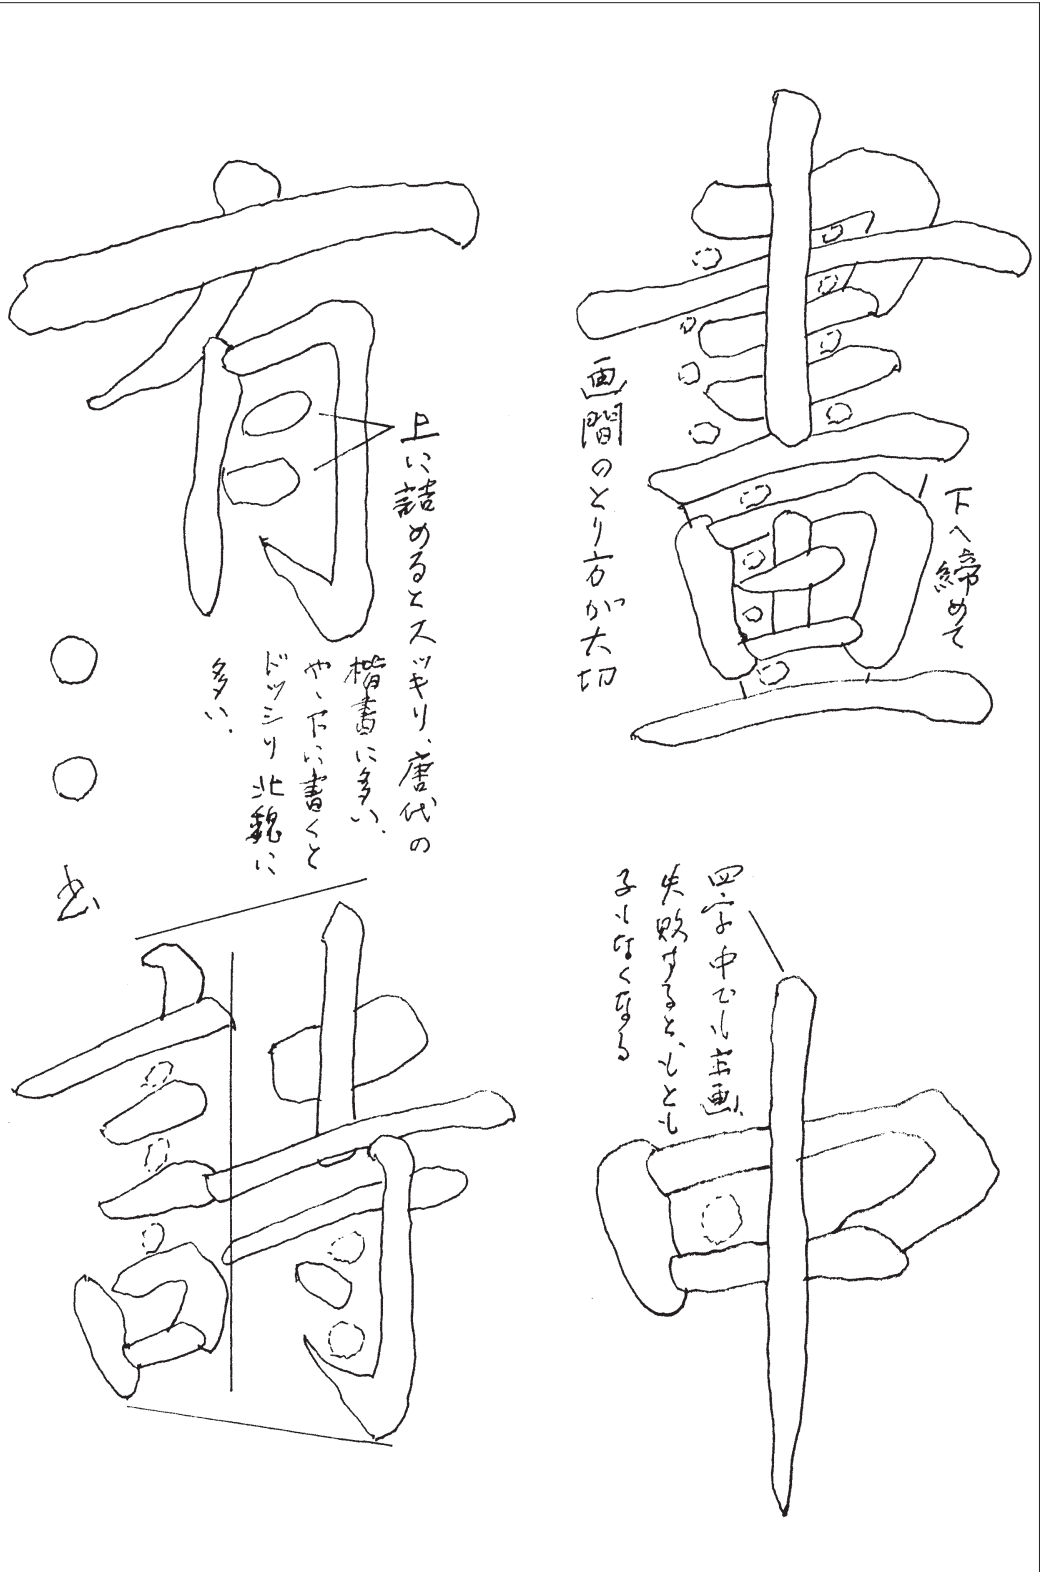 畫
画間のとり方が大切
下へ締めて
中
四字中でも主画、
失敗すると、もとも
子もなくなる
有
上に詰めるとスッキリ、唐代の
楷書に多い、
やゝ下に書くと
ドッシリ北魏に
多い、
詩
○○書